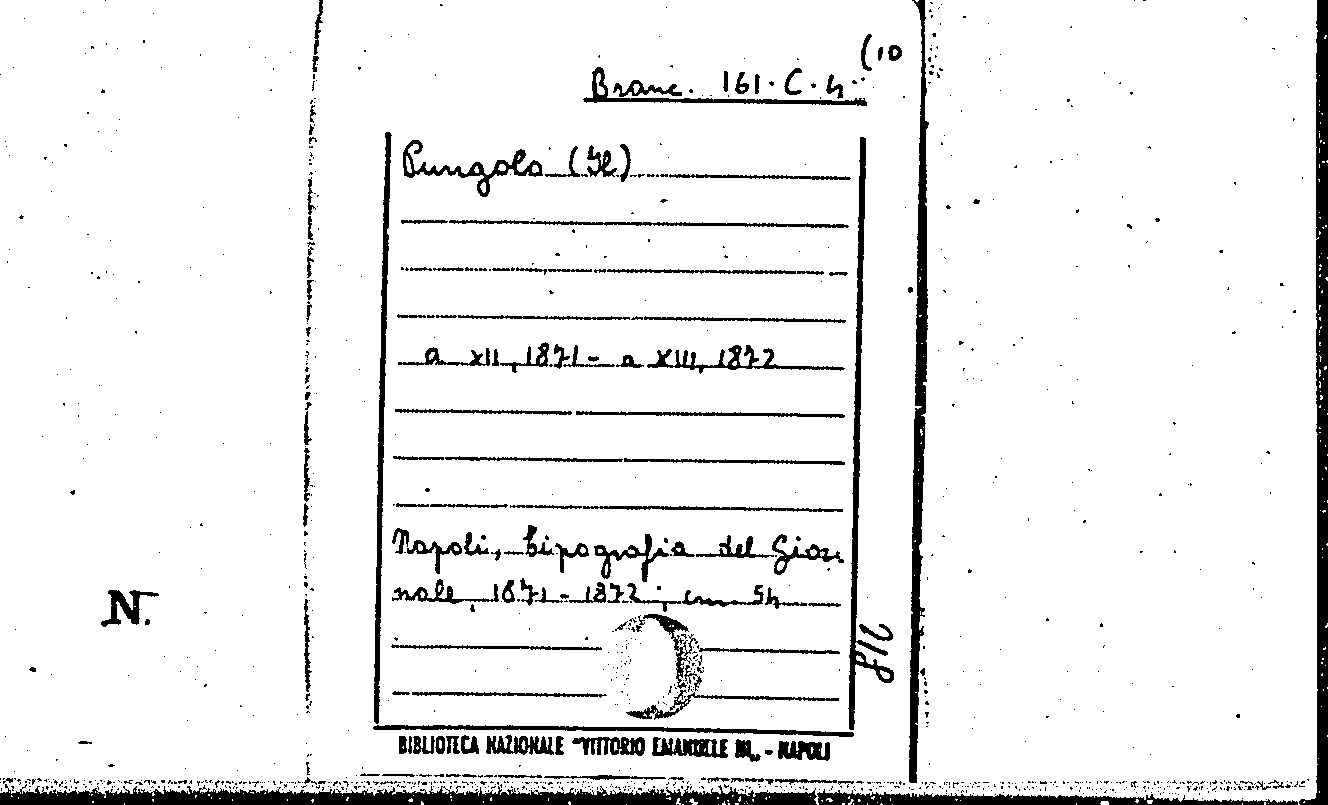 (10
Branc. 161. C. 4
Pungolo (Il)
a XII, 1871 - a XIII, 1872
Napoli, tipografia del Gior
nale, 1871 - 1872 ; cm 54
N.
BIBLIOTECA NAZIONALE "VITTORIO EMANUELE III„ - NAPOLI